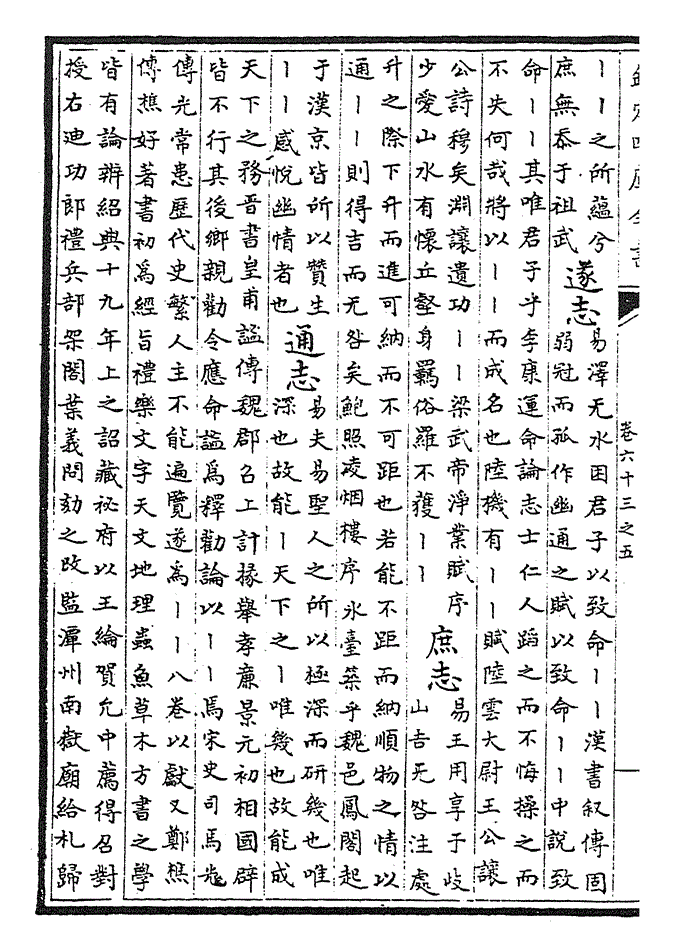 欽定四庫全書
卷六十三之五
丨丨之所蘊兮
庶無忝于祖武
遂志
易澤无水困君子以致命丨丨漢書叙傳固
弱冠而孤作幽通之賦以致命丨丨中說致
命丨丨其唯君子乎李康運命論志士仁人蹈之而不悔操之而
不失何哉將以丨丨而成名也陸機有丨丨賦陸雲大尉王公讓
公詩穆矣淵讓遺功丨丨梁武帝淨業賦序
少愛山水有懷丘壑身羈俗羅不獲丨丨
庶志
易王用享于岐
山吉无咎注處
升之際下升而進可納而不可距也若能不距而納順物之情以
通丨丨則得吉而无咎矣鮑照凌烟樓序氷臺築乎魏邑鳳閣起
于漢京皆所以贊生
丨丨感悅幽情者也
通志
易夫易聖人之所以極深而研幾也唯
深也故能丨天下之丨唯幾也故能成
天下之務晉書皇甫謐傳魏郡召上計掾舉孝亷景元初相國辟
皆不行其後鄉親勸令應命謐爲釋勸論以丨丨焉宋史司馬光
傳光常患歷代史繁人主不能遍覽遂爲丨丨八卷以獻又鄭樵
傳樵好著書初爲經旨禮樂文字天文地理蟲魚草木方書之學
皆有論辨紹興十九年上之詔藏祕府以王綸賀允中薦得召對
授右迪功郎禮兵部架閣葉義問劾之改監潭州南嶽廟給札歸